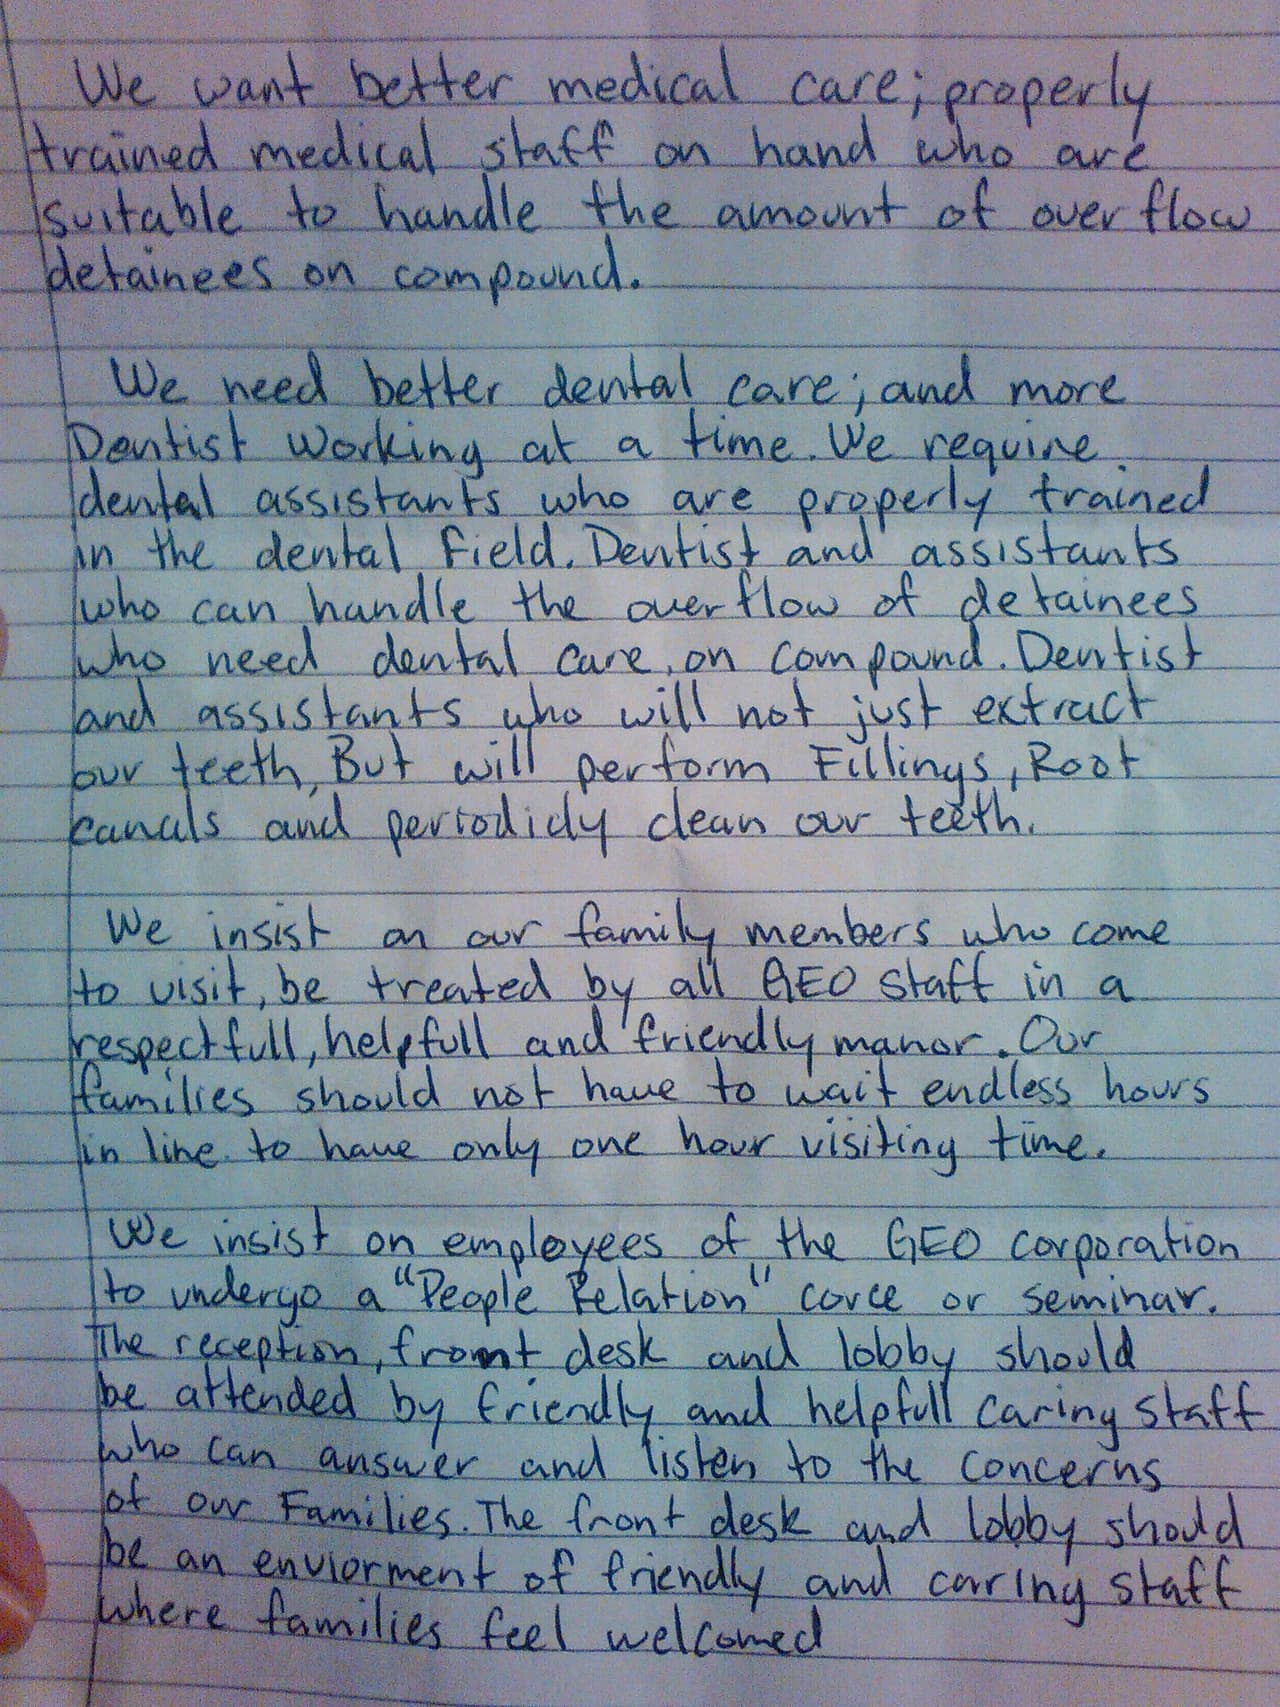 We want better medical care; properly
trained medical staff on hand who are
suitable to handle the amount of over flow
detainees on compound.
We need better dental care; and more
Dentist Working at a time. We require
dental assistants who are properly trained
in the dental Field. Dentist and assistants
who can handle the over flow of detainees
who need dental care, on compound. Dentist
and assistants who will not just extract
our teeth, But will perform Fillings, Root
canals and periodidy clean our teeth.
We insist on our family members who come
to visit, be treated by all GEO staff in a
respectfull, helpfull and friendly manor. Our
families should not have to wait endless hours
in line to have only one hour visiting time.
We insist on employees of the GEO corporation
to undergo a "People Relation" corce or seminar.
The reception, front desk and lobby should
be attended by friendly and helpfull caring staff
who can answer and listen to the concerns
of our Families. The front desk and lobby should
be an enviorment of friendly and caring staff
where families feel welcomed